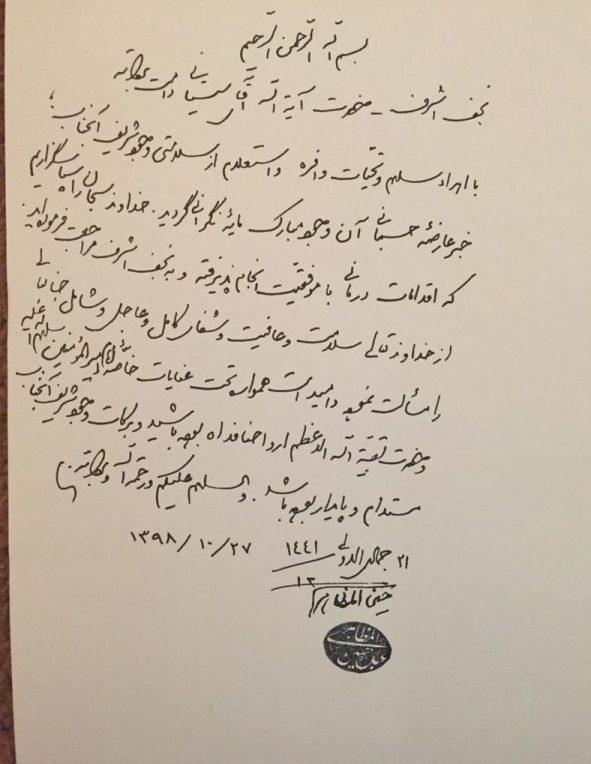 بسم الله الرحمن الرحیم
نجف اشرف - حضرت آیة الله آقای سیستانی دامت برکاته
با اهداء سلام و تحیّات وافره و استعلام از سلامتی وجود شریف آنجناب،
خبر عارضهٔ جسمانی آن وجود مبارک مایهٔ نگرانی گردید. خداوند سبحان را سپاسگزاریم
که اقدامات درمانی با موفقیّت انجام پذیرفته و به نجف اشرف مراجعت فرموده‌اید.
از خداوند تعالی سلامت و عافیت و شفای کامل و عاجل و شامل جنابعالی
را مسألت نموده و امید است همواره تحت عنایات خاصّهٔ امیرالمؤمنین سلام الله علیه
و حضرت بقیة الله الاعظم ارواحنا فداه بوده باشید و برکات وجود شریف آنجناب
مستدام و پایدار بوده باشد. والسلام علیکم و رحمة الله و برکاته
۲۱ جمادی الاولی ۱۴۴۱ ۱۳۹۸/۱۰/۲۷
حسین المظاهری
المظاهری
حسین